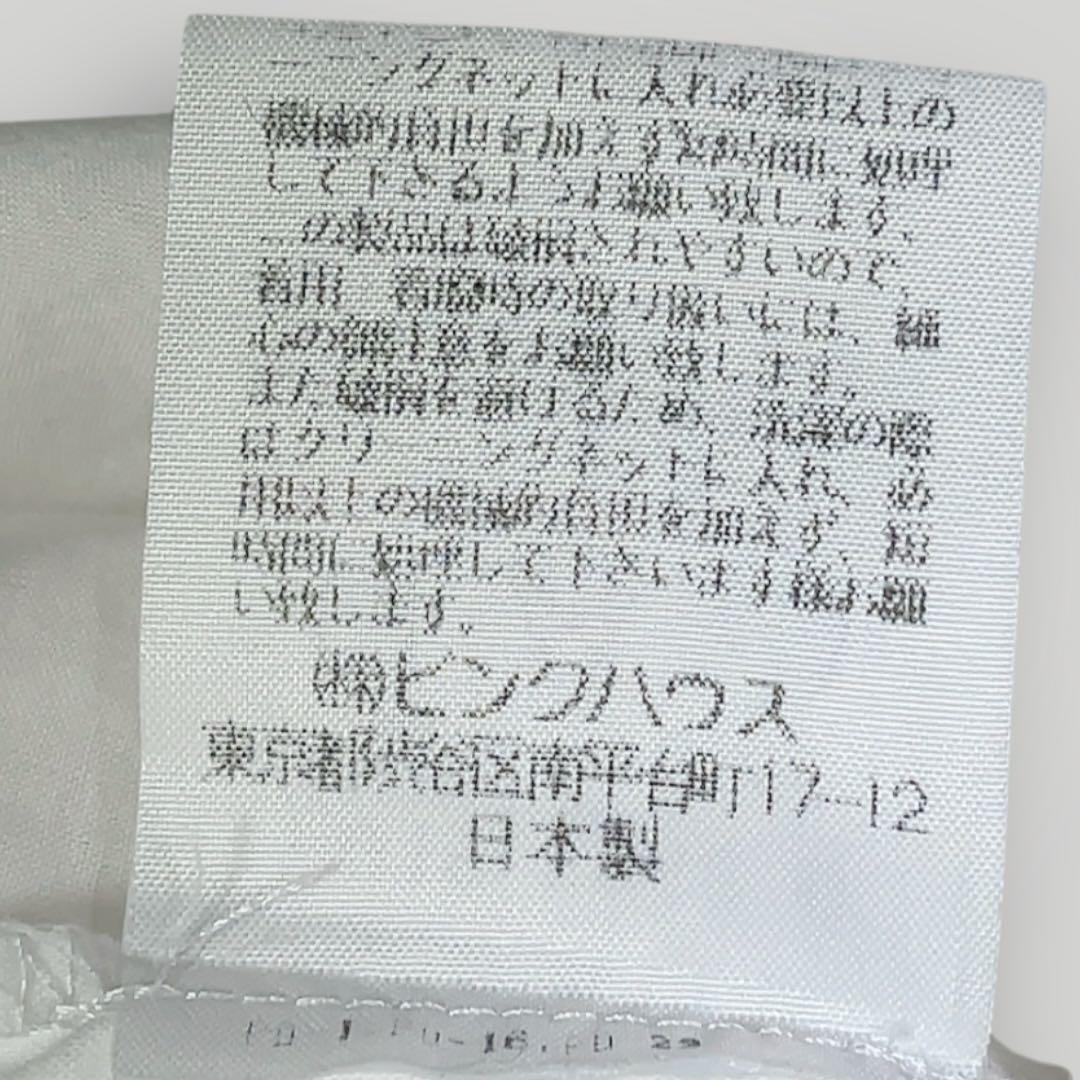 ーニングネットに入れ必要以上の
機械的負担を加えず短時間に処理
して下さるようお願い致します。
この製品は破損されやすいので、
着用 着脱時の取り扱いには、細
心の御注意をお願い致します。
また破損を避けるため、洗濯の際
はクリーニングネットに入れ、必
要以上の機械的負担を加えず、短
時間に処理して下さいます様お願
い致します。
㈱ピンクハウス
東京都渋谷区南平台町17-12
日本製